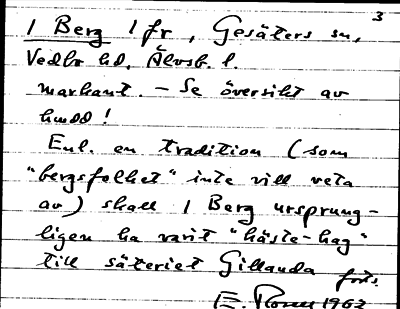 3
1 Berg 1 fr, Gesäters sn,
Vedbo hd, Älvsb. l.
markant. - Se översikt av
huvud!
Enl. en tradition (som
"bergsfolket" inte vill veta
av) skall 1 Berg ursprung-
ligen ha varit "häste-hag"
till säteriet Gillanda forts.
E. Rosen 1963